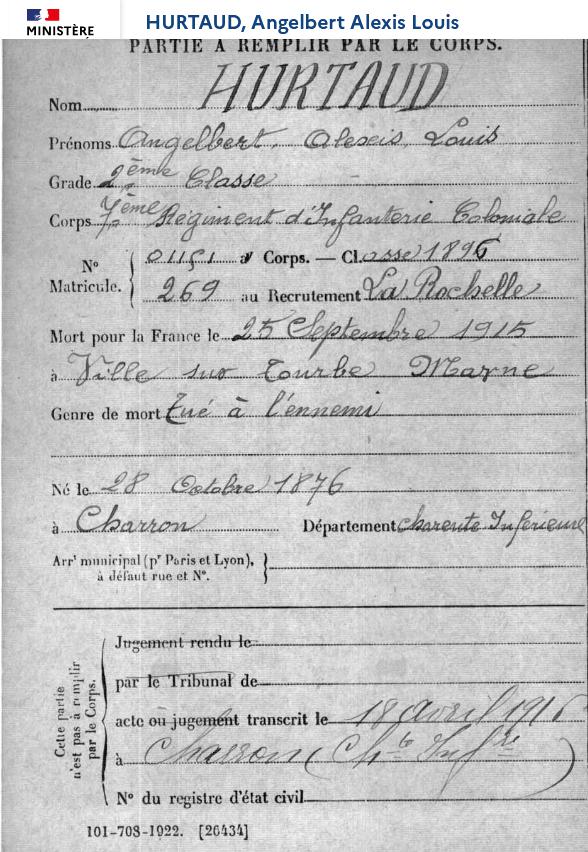 MINISTÈRE
HURTAUD, Angelbert Alexis Louis
PARTIE À REMPLIR PAR LE CORPS.
Nom HURTAUD
Prénoms Angelbert, Alexis Louis
Grade 2ème Classe
Corps 7ème Régiment d'Infanterie Coloniale
N° Matricule.
01151 au Corps. — Classe 1896
269 au Recrutement La Rochelle
Mort pour la France le 25 Septembre 1915
à Ville sur Tourbe Marne
Genre de mort Tué à l'ennemi
Né le 28 Octobre 1876
à Charron Département Charente Inférieure
Arrt municipal (pr Paris et Lyon), à défaut rue et N°.
Cette partie n'est pas à remplir par le Corps.
Jugement rendu le
par le Tribunal de
acte ou jugement transcrit le 18 avril 1916
à Charron (Chte Infre)
N° du registre d'état civil
101-708-1922. [26434]